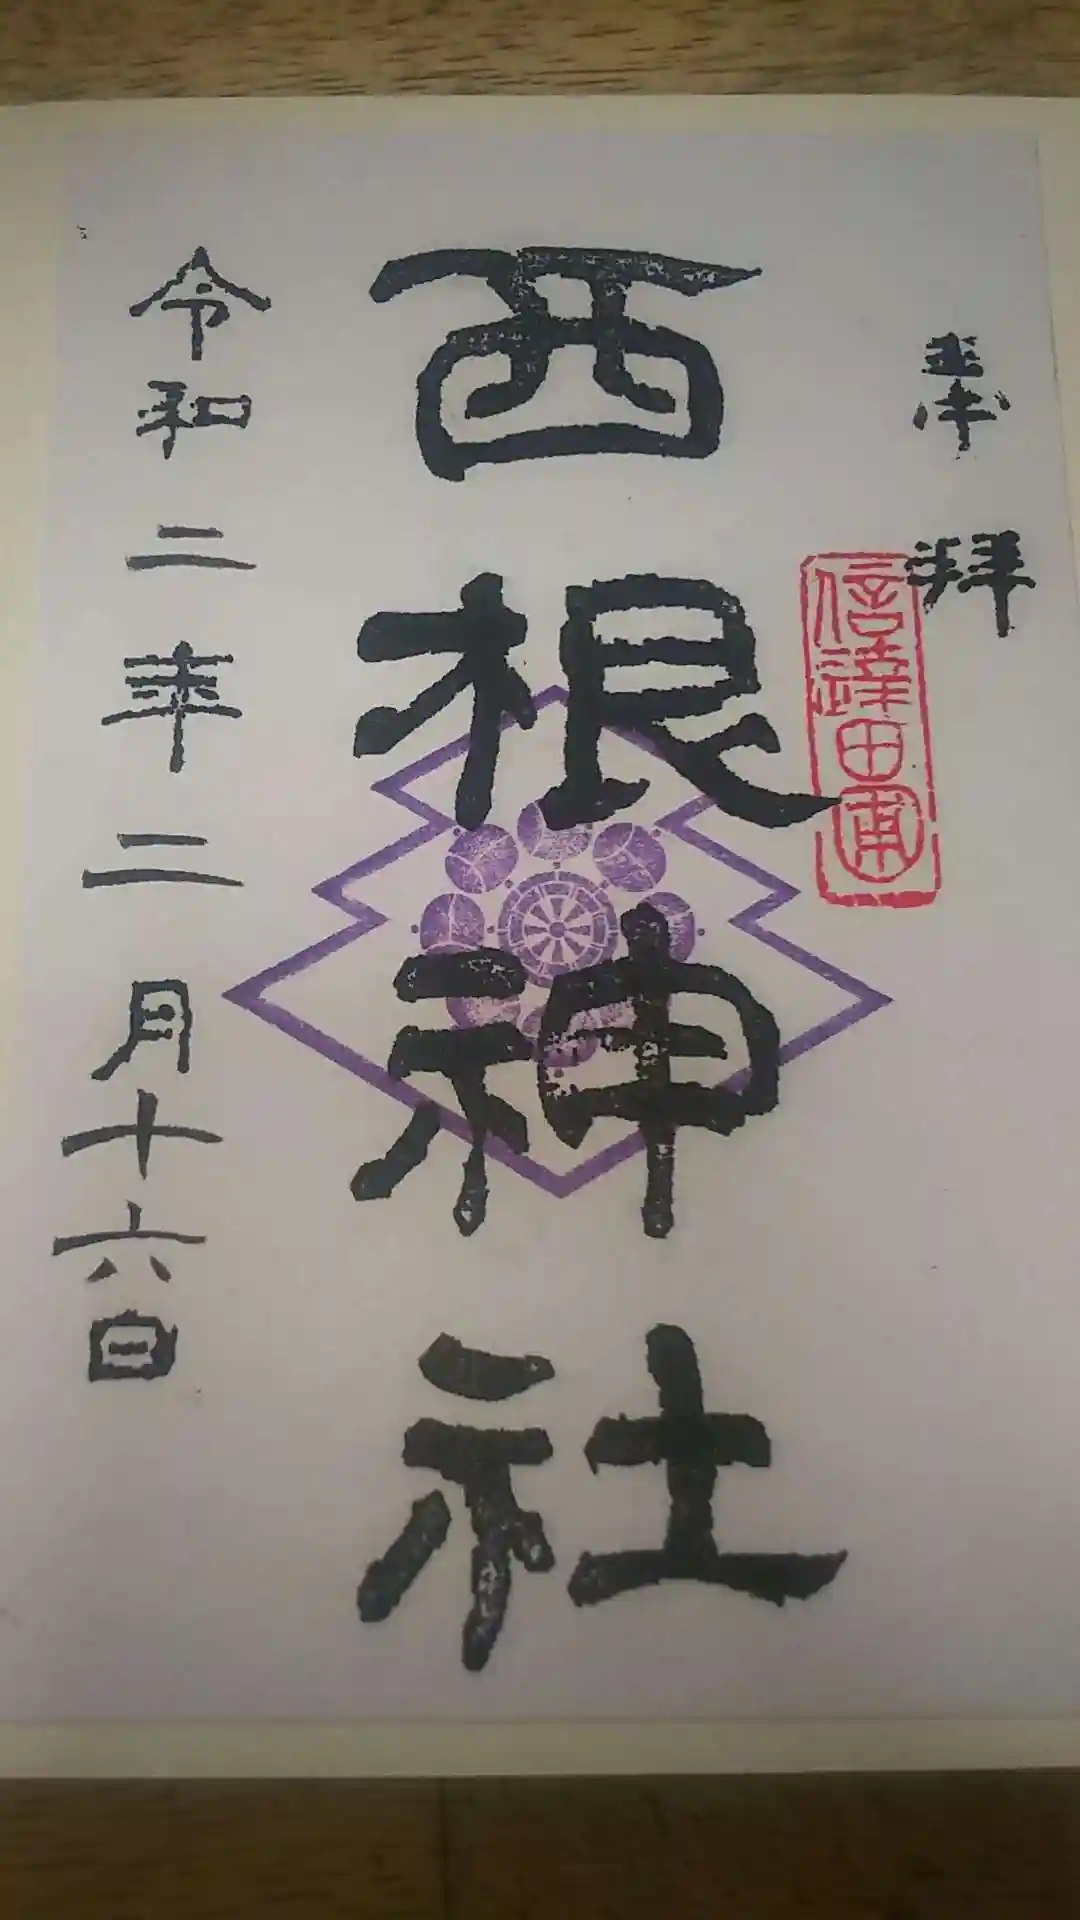 奉拝
信達田甫
西根神社
令和二年二月十六日